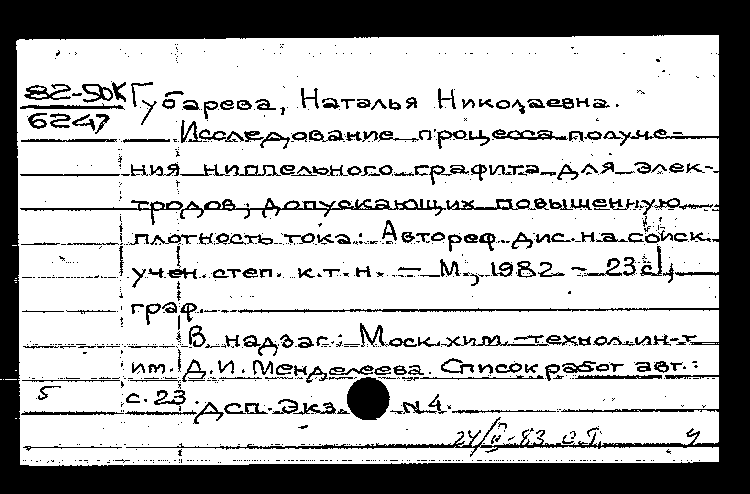 82-50К Губарева, Наталья Николаевна.
6247
Исследование процесса получе-
ния ниппельного графита для элек-
тродов, допускающих повышенную
плотность тока: Автореф. дис. на соиск.
учен. степ. к.т.н. — М., 1982 - 23 с.,
граф.
В надзаг.: Моск. хим.-технол. ин-т
им. Д.И. Менделеева. Список работ авт.:
5 с. 23. ДСП. Экз. N 4.
24/II-83